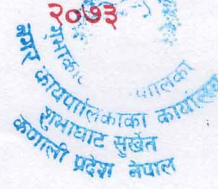 २०७३
नगर कार्यपालिकाको कार्यालय
शुभाघाट सुर्खेत
कर्णाली प्रदेश नेपाल